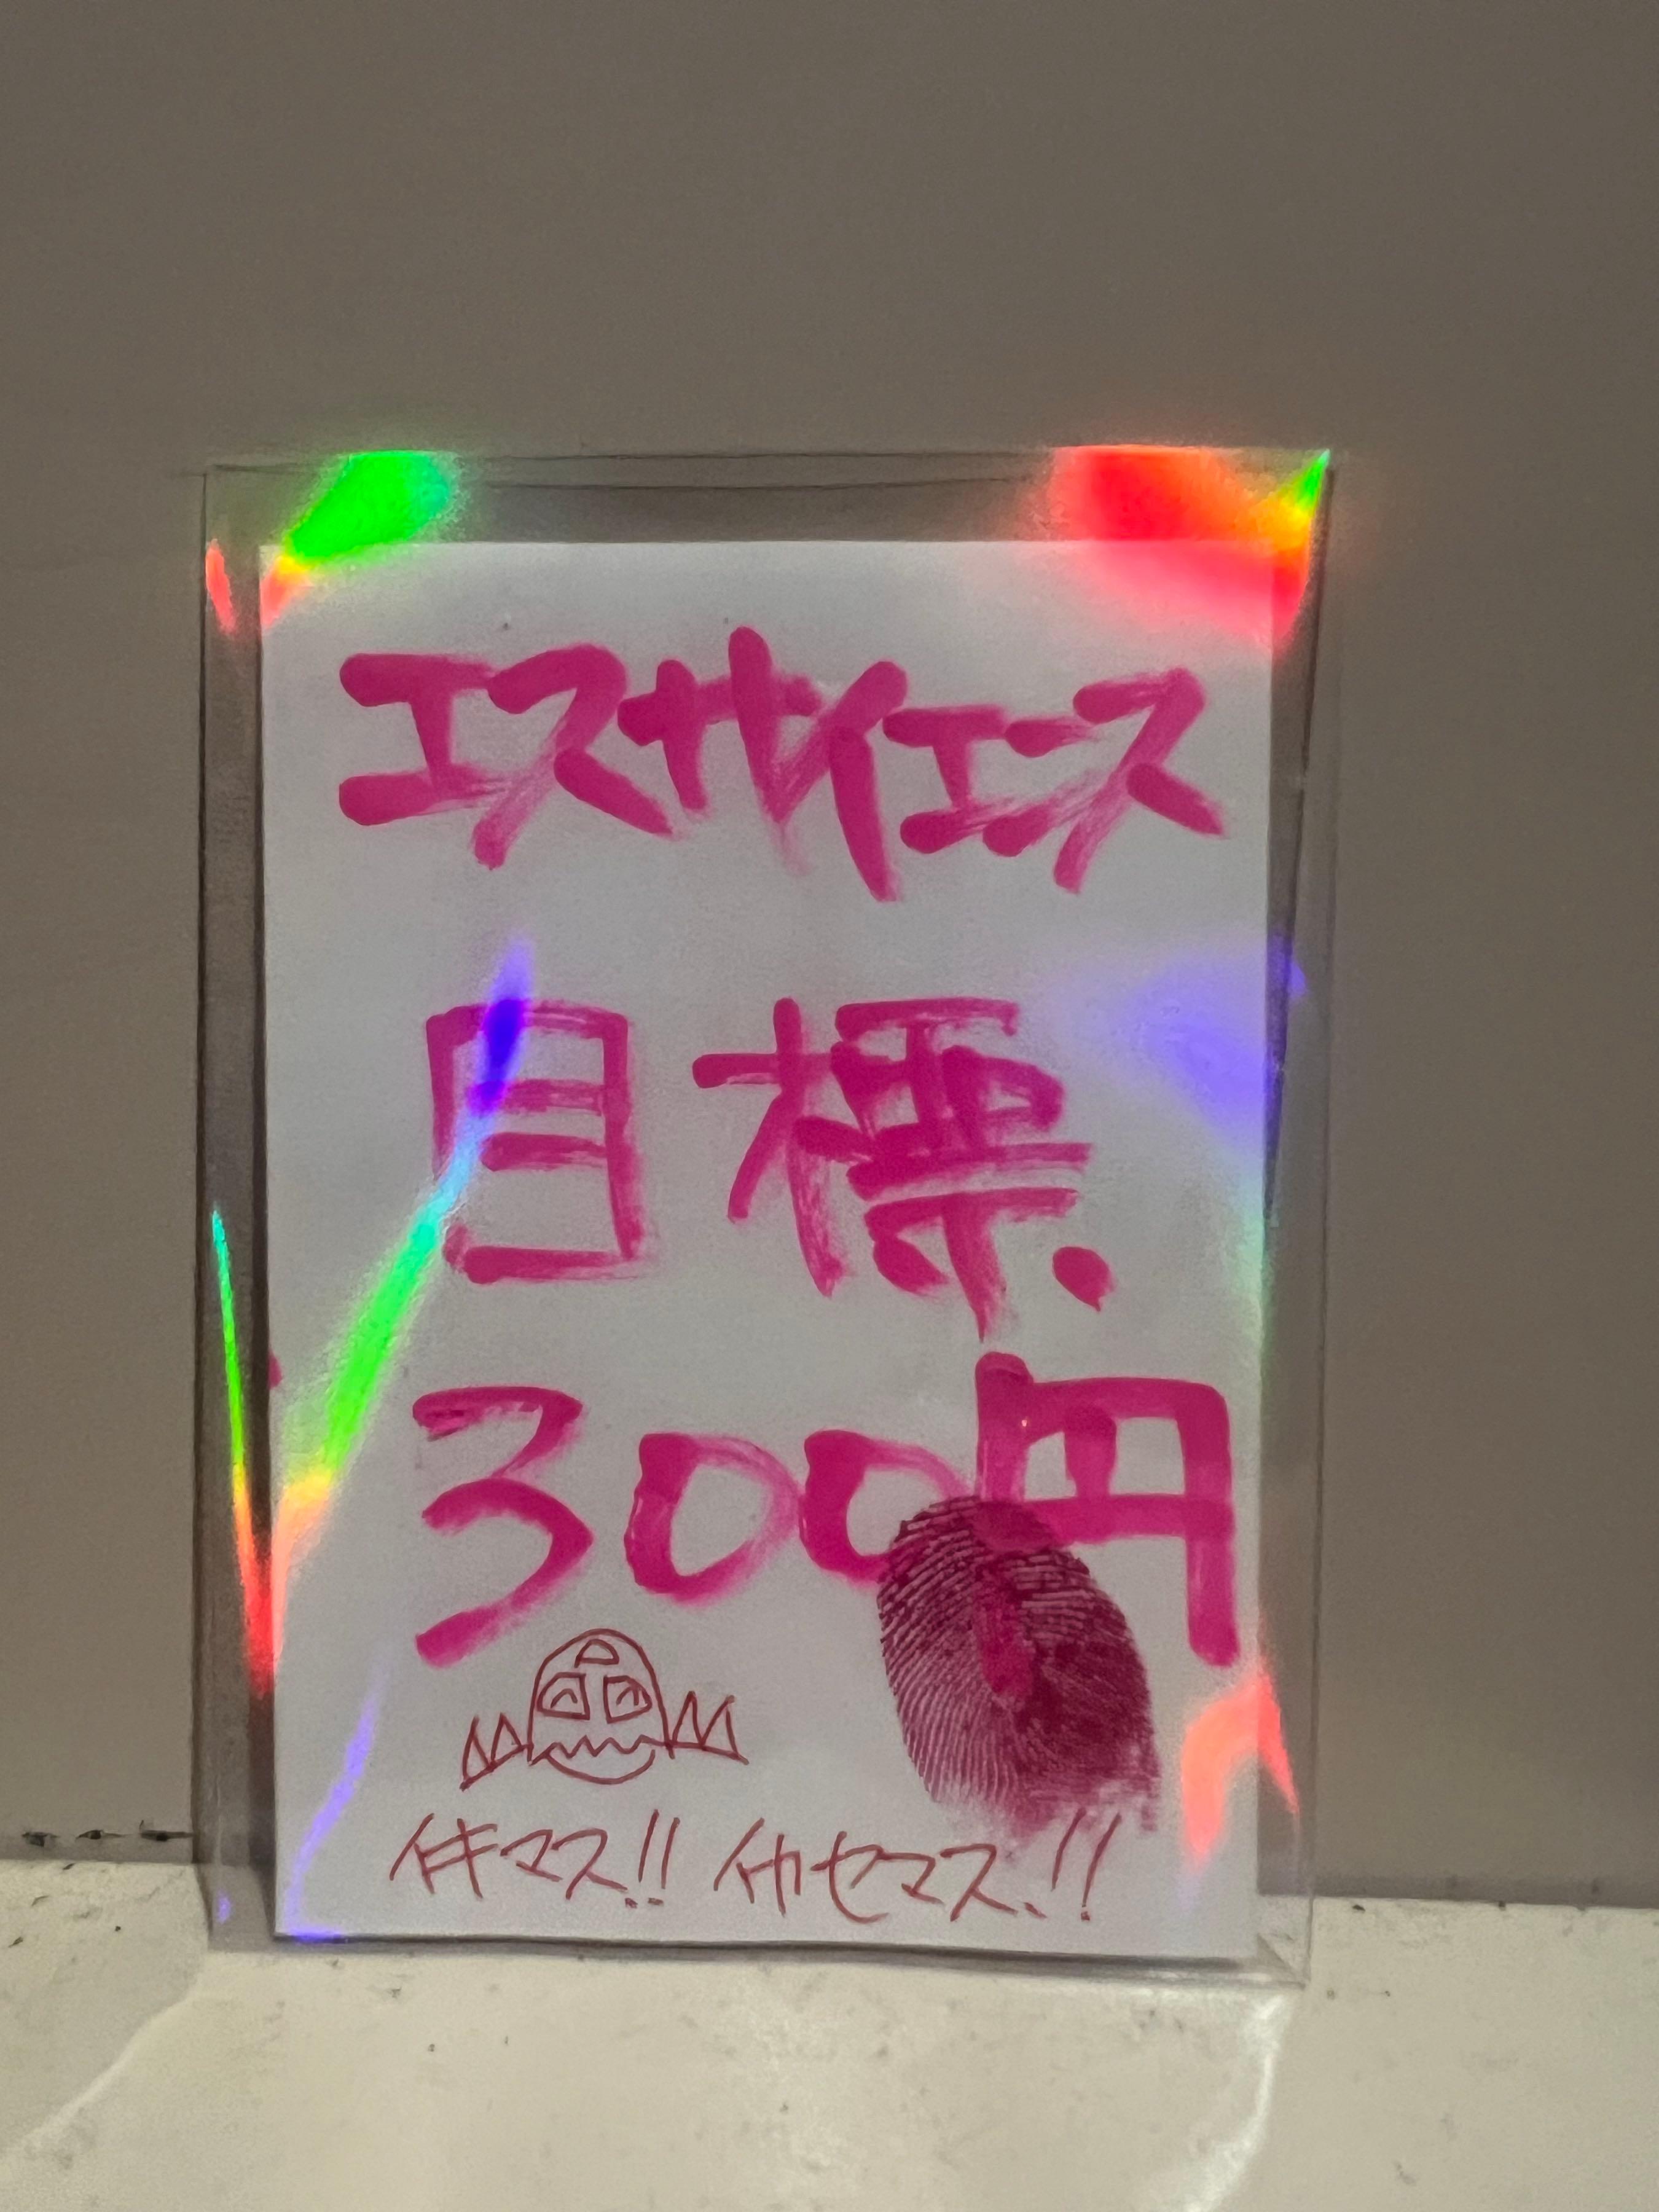 エスサイエンス
目標.
300円
イキマス!! イカセマス!!